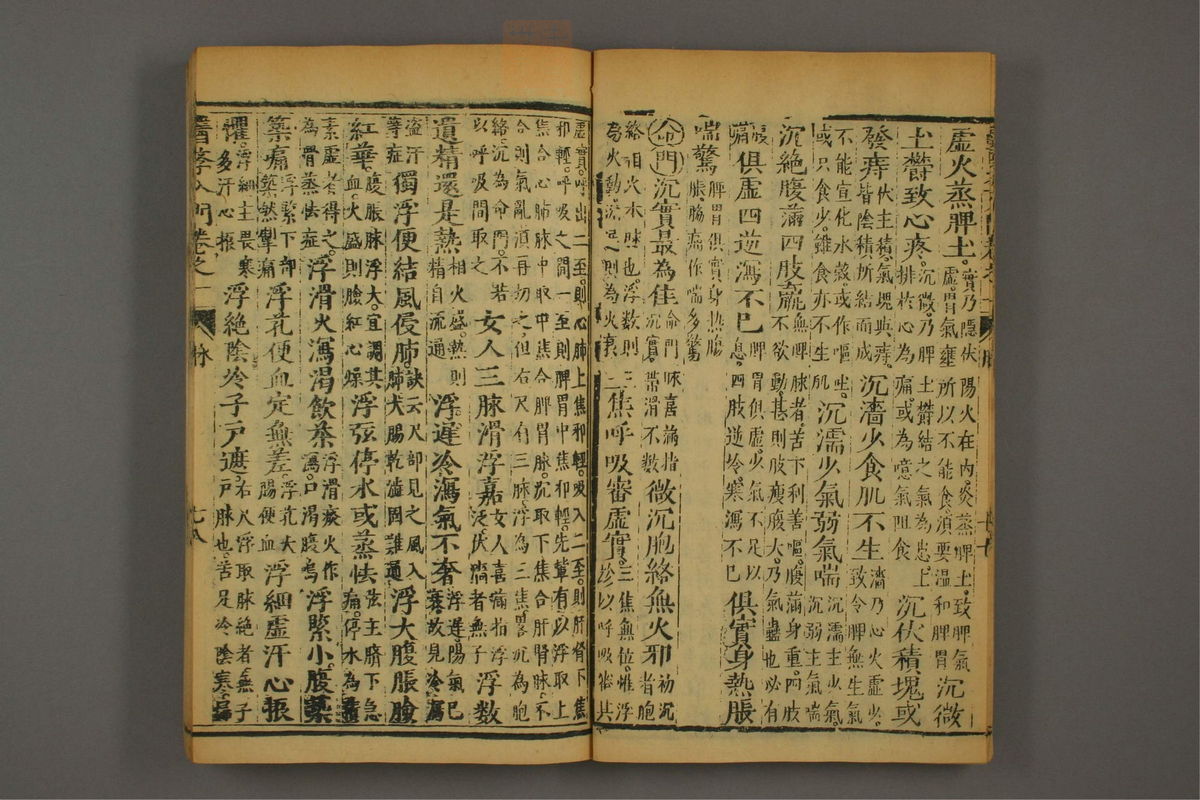 虛火蒸脾土實乃隱伏陽火在內炎蒸脾土致脾氣虛胃氣壅所以不能食須要溫和脾胃沉微
土鬱致心疼沉微乃脾土鬱結之氣為患上排於心為痛或為噫氣阻食沉伏積塊或
發痔伏主積氣塊與痔皆陰積所結而成沉濇少食肌不生濇乃心火虛少致令脾無生氣
不能宣化水穀或作嘔吐或只食少雖食亦不生肌沉濡少氣弱氣喘沉濡主少氣沉弱主氣喘
沉絕腹滿四肢羸無脾脉者苦下利善嘔腹滿身重四肢不欲動甚則肢瘦腹大乃氣蠱也必有
痛俱虛四逆瀉不已脾胃俱虛少氣不足以息四肢逆冷寒瀉不已俱實身熱脹
喘驚脾胃俱實身熱腸脹脇痛作喘多驚
命門沉實最為佳命門沉實脉喜滿指帶滑不數微沉胞絡無火邪初沉者胞
絡相火本脉也浮數則為火動沉遲則為火衰三焦呼吸審虛實三焦無位惟浮診以呼吸察其
虛實呼出二至則心肺上焦和輕吸入二至則肝腎下焦
和輕呼吸之間一至則脾胃中焦和輕先輩有以浮取上
焦合心肺脉中取中焦合脾胃脉沉取下焦合肝腎脉不
合則氣亂須再切之但右尺有三脉浮為三焦畧沉為胞
絡沉為命門不若以呼吸間取之女人三脉滑浮嘉女人喜滿指浮泛伏濇者無子浮數
遺精還是熱相火盛熱則精自流通浮遲冷瀉氣不奢浮遲陽氣已衰故見冷瀉
盜汗等症獨浮便結風侵肺訣云尺部見之風入肺大腸乾澁固難通浮大腹脹臉
紅華腹脹脉浮大宜調其血火盛則臉紅心燥浮弦停水或蒸怯弦主臍下急痛停水為
素虛者得之為骨蒸怯症浮滑火瀉渴飲茶浮滑痰火作瀉口渴腹鳴浮緊小腹
築痛浮緊下部築然掣痛浮芤便血定無差浮芤大腸便血浮細虛汗心振
懼浮細主畏寒多汗心振浮絕陰冷子戶遮右尺浮取脉絕者無子戶脉也苦足冷陰寒
醫學入門卷之一
脉
七八